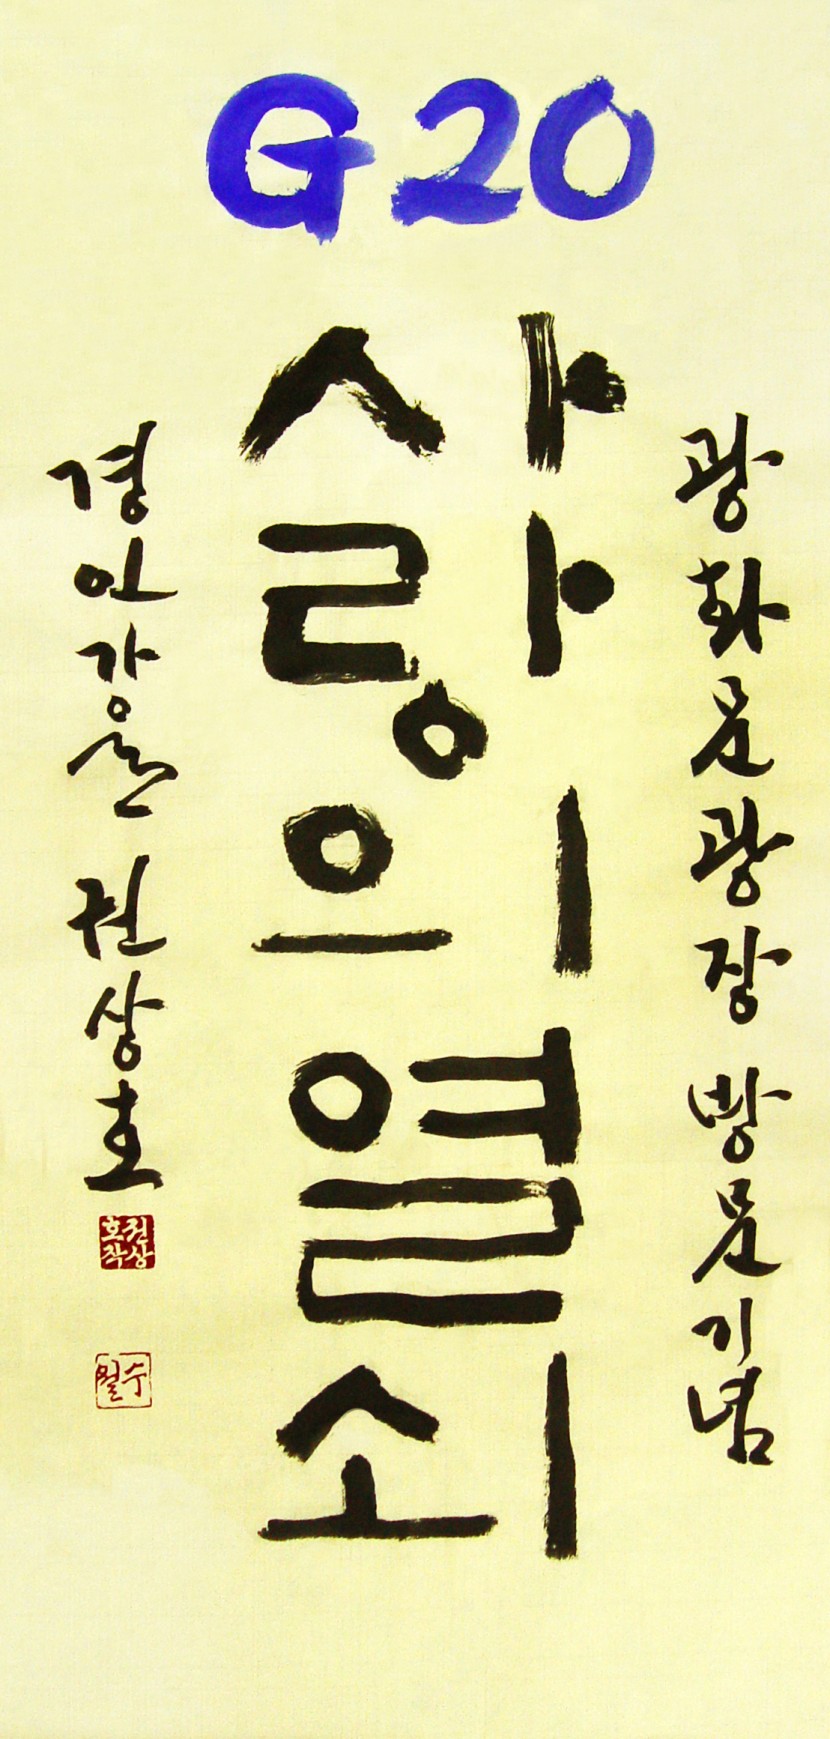 G20
사랑의 열쇠
광화문광장 방문기념
경인가을 권상호
권상호작
수월